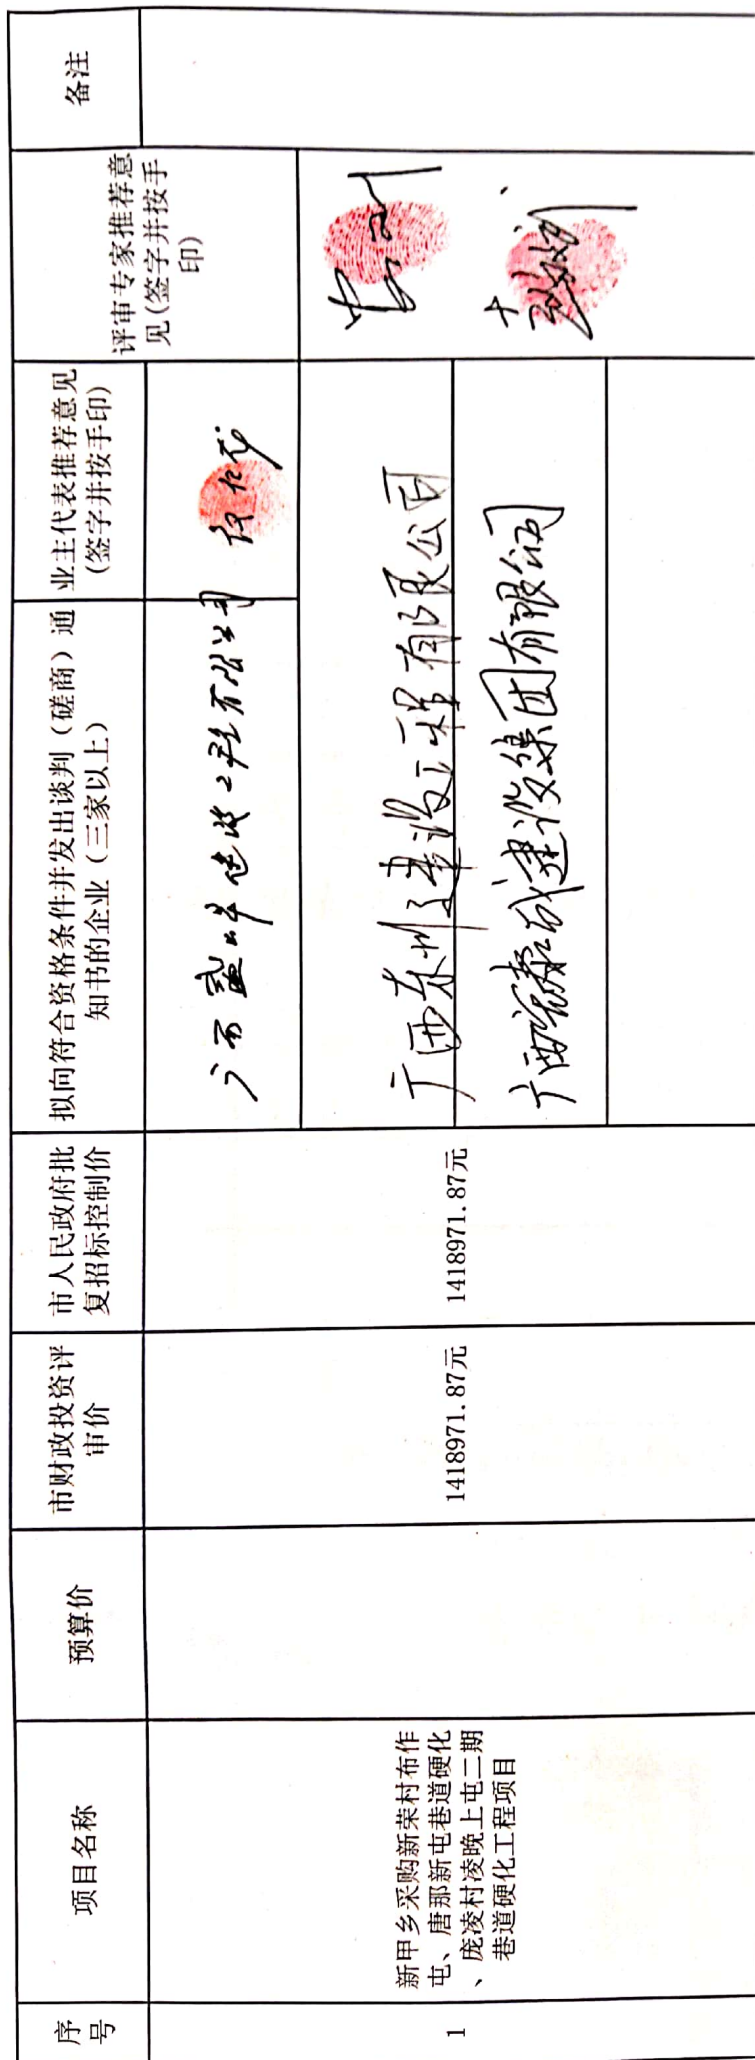 序
号
项目名称
预算价
市财政投资评
审价
市人民政府批
复招标控制价
拟向符合资格条件并发出谈判（磋商）通
知书的企业（三家以上）
业主代表推荐意见
(签字并按手印)
评审专家推荐意
见(签字并按手
印)
备注
1
新甲乡采购新荣村布作
屯、唐那新屯巷道硬化
、庞凌村凌晚上屯二期
巷道硬化工程项目
1418971.87元
1418971.87元
广西盛华建设工程有限公司
广西东州建设工程有限公司
广西建设集团有限公司